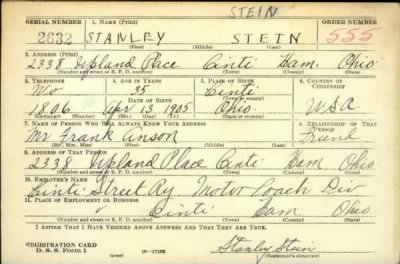 STEIN
SERIAL NUMBER 1. NAME (Print) ORDER NUMBER
2632 STANLEY STEIN 555
(First) (Middle) (Last)
2. ADDRESS (Print)
2338 Upland Place Cinti Ham. Ohio
(Number and street or R. F. D. number) (Town) (County) (State)
3. TELEPHONE 4. AGE IN YEARS 5. PLACE OF BIRTH 6. COUNTRY OF CITIZENSHIP
Wo 35 Cinti
DATE OF BIRTH (Town or county)
1806 Apr 13 1905 Ohio USA
(Mo.) (Day) (Yr.) (State or country)
7. NAME OF PERSON WHO WILL ALWAYS KNOW YOUR ADDRESS 8. RELATIONSHIP OF THAT PERSON
Mr Frank Anson Friend
(Mr., Mrs., Miss) (First) (Middle) (Last)
9. ADDRESS OF THAT PERSON
2338 Upland Place Cinti Ham Ohio
(Number and street or R. F. D. number) (Town) (County) (State)
10. EMPLOYER'S NAME
Cinti Street Ry Motor Coach Div
11. PLACE OF EMPLOYMENT OR BUSINESS
Cinti Ham Ohio
(Number and street or R. F. D. number) (Town) (County) (State)
I AFFIRM THAT I HAVE VERIFIED ABOVE ANSWERS AND THAT THEY ARE TRUE.
REGISTRATION CARD
D. S. S. Form 1 (over) Stanley Stein
(Registrant's signature)